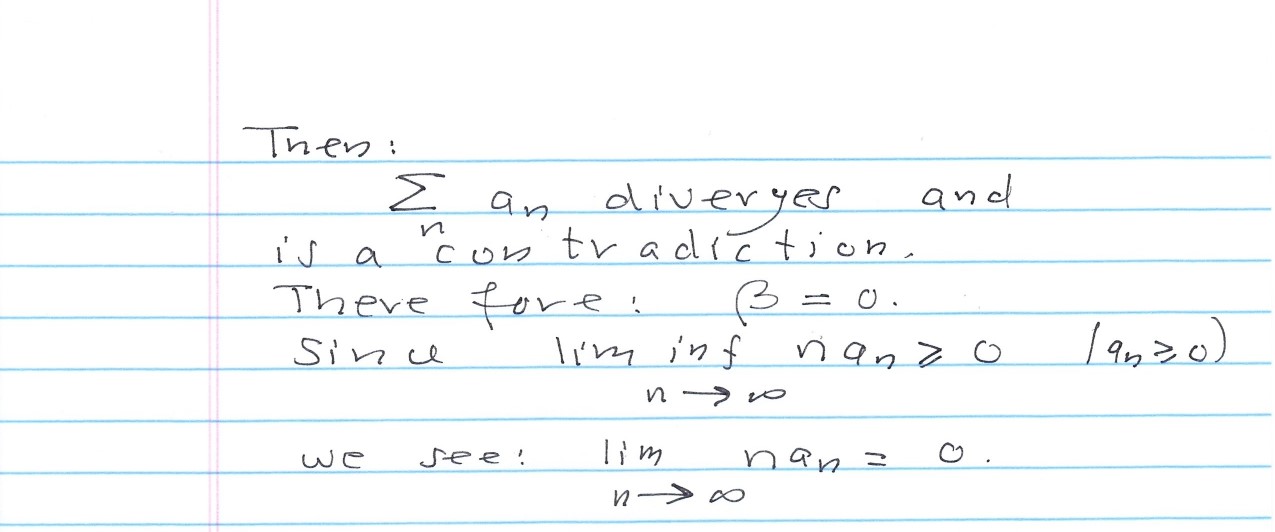 Then:
Σ aₙ diverges and
n
is a contradiction.
Therefore: β = 0.
Since lim inf n aₙ ≥ 0 (aₙ ≥ 0)
n → ∞
we see: lim n aₙ = 0.
n → ∞